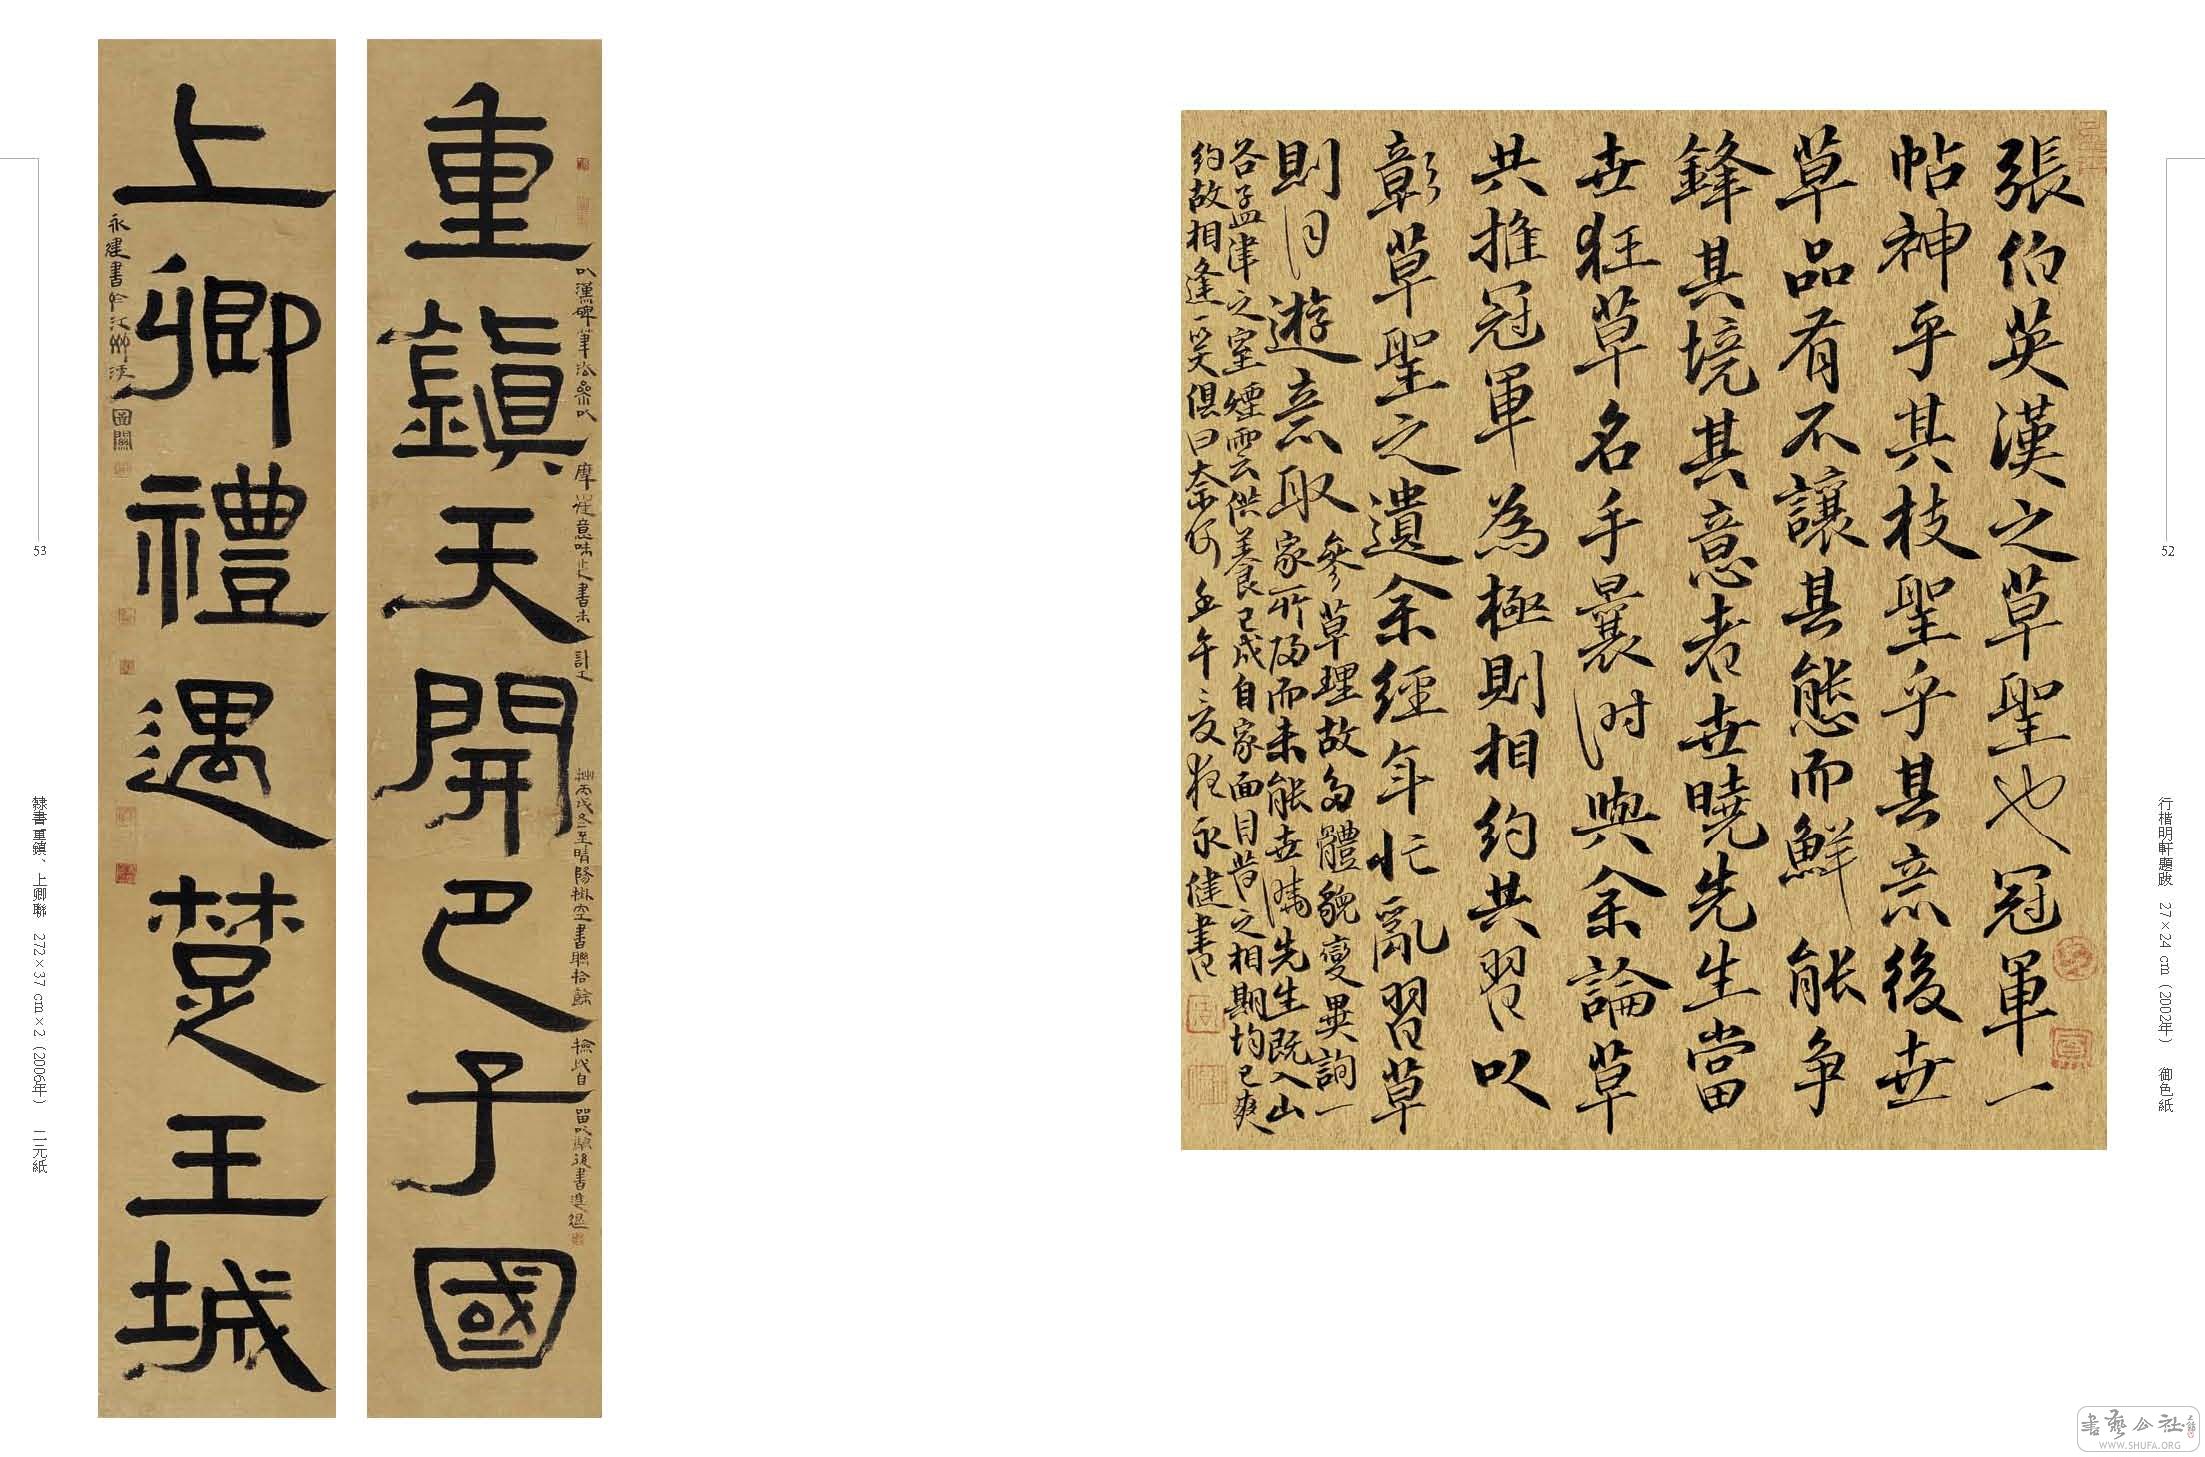 張伯英漢之草聖也冠軍一
帖神乎其枝聖乎其意後世
草品有不讓其態而鮮能爭
鋒其境其意者世曉先生當
世狂草名手曩時與余論草
共推冠軍為極則相約共習以
彰草聖之遺余經年忙亂習草
則同遊意取
參草理故多體貌變異詢一
家所陽而未能世曉先生既入山
谷孟津之室煙雲供養已成自家面目昔之相期均已爽
約故相逢一笑俱曰奈何 壬午之夏夜永健書
52
行楷明軒題跋 27×24 cm (2002年) 御色紙
重鎮天開巴子國
以漢碑筆法參以摩崖意味之書未計工
丙戌冬至晴陽掛空書聯拾餘
後書
上卿禮遇楚王城
永建書於江州
53
隸書重鎮、上卿聯 272×37 cm×2 (2006年) 二元紙
書藝公社
WWW.SHUFA.ORG